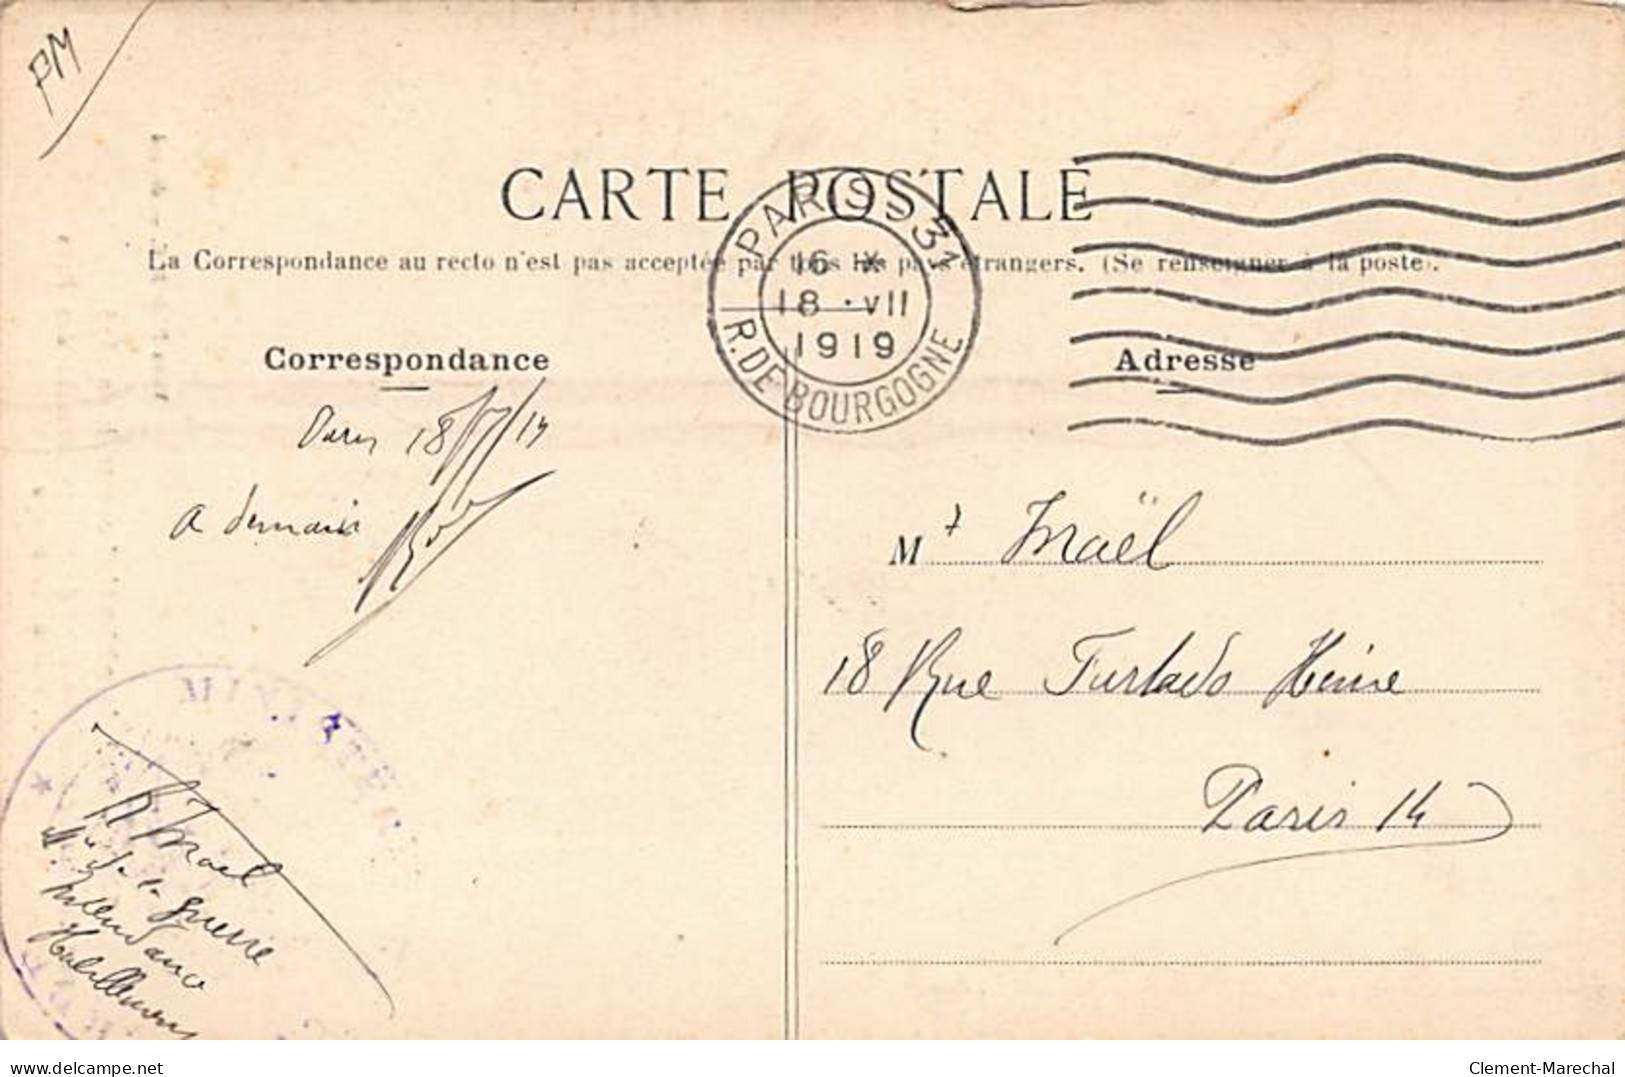 PM
CARTE POSTALE
La Correspondance au recto n'est pas acceptée par tous les pays étrangers. (Se renseigner à la poste).
PARIS 31
16 H
18 · VII
1919
R. DE BOURGOGNE
Correspondance
Adresse
Paris 18/7/19
a demain
M
18 Rue Furtado Heine
Paris 14
MINISTÈRE
de la guerre
Intendance
Habillement
delcampe.net
Clement-Marechal